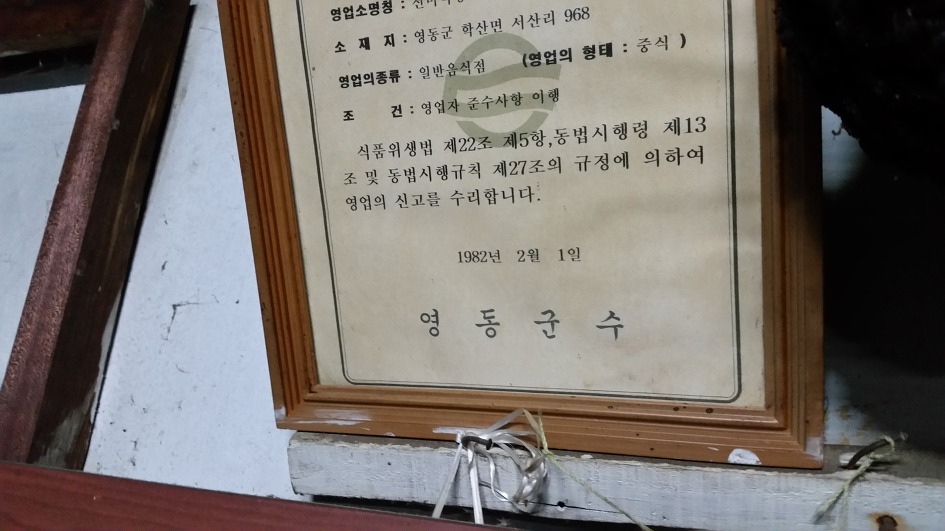 영업소명칭 :
소 재 지 : 영동군 학산면 서산리 968
영업의종류 : 일반음식점 (영업의 형태 : 중식 )
조 건 : 영업자 준수사항 이행
식품위생법 제22조 제5항,동법시행령 제13
조 및 동법시행규칙 제27조의 규정에 의하여
영업의 신고를 수리합니다.
1982년 2월 1일
영 동 군 수